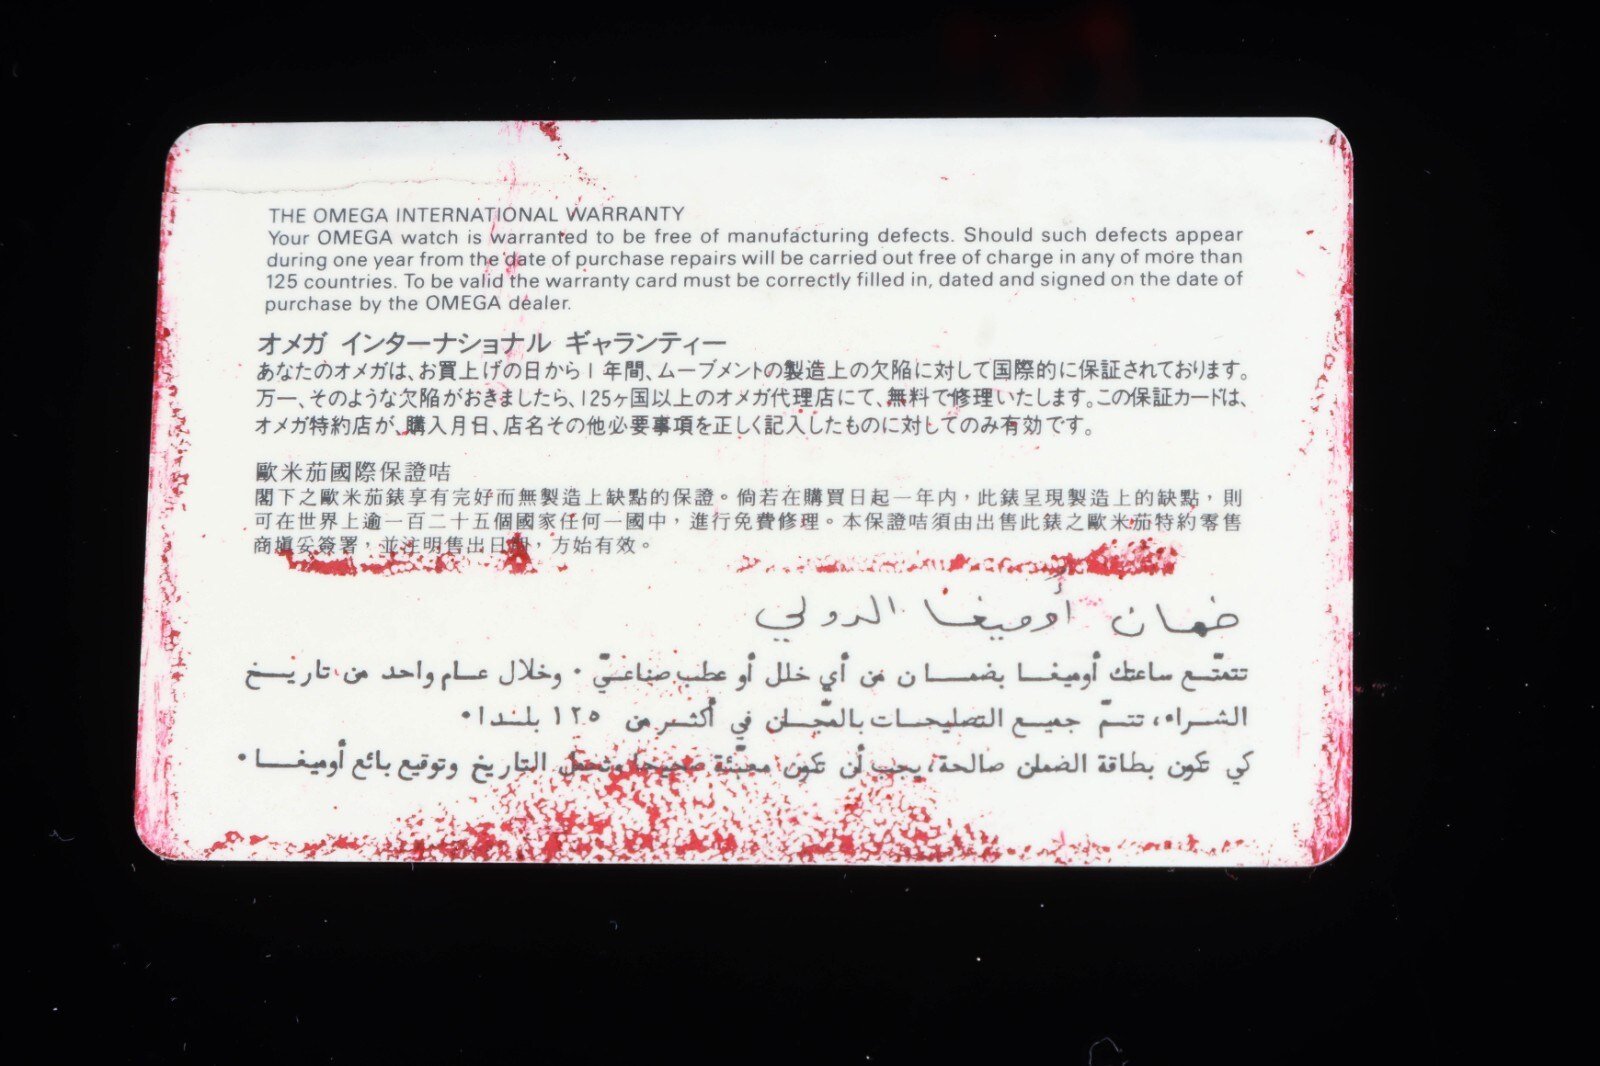 THE OMEGA INTERNATIONAL WARRANTY
Your OMEGA watch is warranted to be free of manufacturing defects. Should such defects appear
during one year from the date of purchase repairs will be carried out free of charge in any of more than
125 countries. To be valid the warranty card must be correctly filled in, dated and signed on the date of
purchase by the OMEGA dealer.
オメガ インターナショナル ギャランティー
あなたのオメガは、お買上げの日から1年間、ムーブメントの製造上の欠陥に対して国際的に保証されております。
万一、そのような欠陥がおきましたら、125ヶ国以上のオメガ代理店にて、無料で修理いたします。この保証カードは、
オメガ特約店が、購入月日、店名その他必要事項を正しく記入したものに対してのみ有効です。
歐米茄國際保證咭
閣下之歐米茄錶享有完好而無製造上缺點的保證。倘若在購買日起一年内，此錶呈現製造上的缺點，則
可在世界上逾一百二十五個國家任何一國中，進行免費修理。本保證咭須由出售此錶之歐米茄特約零售
商塡妥簽署，並注明售出日期，方始有效。
ضمان أوميغا الدولي
تتمتّع ساعتك أوميغا بضمان من أي خلل أو عطب صناعيّ • وخلال عام واحد من تاريخ
الشراء، تتمّ جميع التصليحات بالمجّان في أكثر من ١٢٥ بلدا •
كي تكون بطاقة الضمان صالحة، يجب أن تكون معبّئة صحيحا وتحمل التاريخ وتوقيع بائع أوميغا •